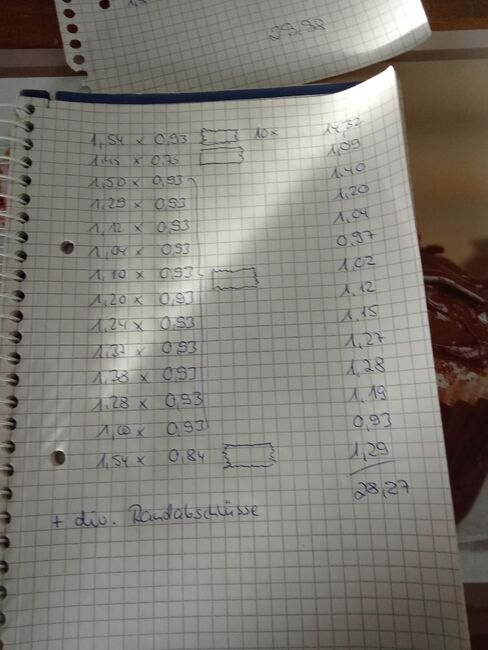 29.98
1,54 x 0,93 10x 14,32
1.45 x 0.75 1,09
1,50 x 0,93 1.40
1,29 x 0,93 1,20
1,12 x 0,93 1,04
1,04 x 0,93 0,97
1,10 x 0,93 1,02
1,20 x 0,93 1,12
1,24 x 0,93 1,15
1,37 x 0,93 1,27
1,38 x 0,93 1,28
1.28 x 0,93 1,19
1,00 x 0,93 0,93
1,54 x 0,84 1,29
28,27
+ div. Randabschlüsse